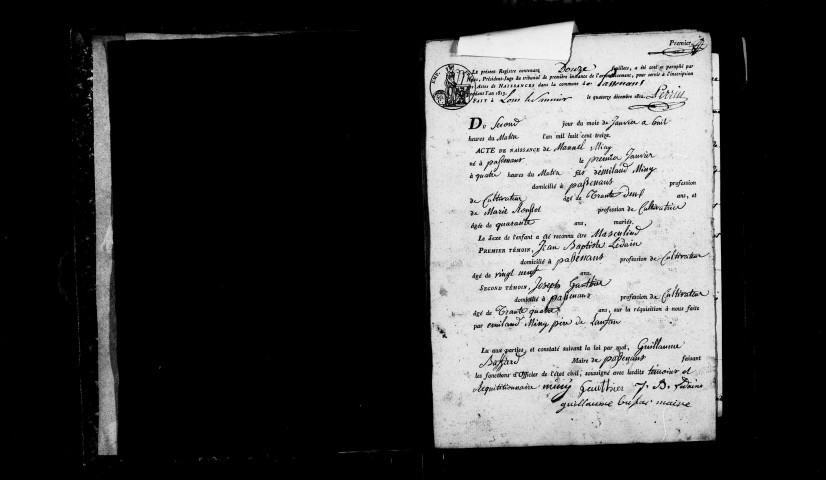 Premier
Le présent Registre contenant Douze feuillets, a été coté et paraphé par
Nous, Président-Juge du tribunal de première instance de l'arrondissement, pour servir à l'inscription
des Actes de NAISSANCES dans la commune de passenans
pendant l'an 1813.
FAIT à Lons le Saunier le quatorze décembre 1812. Perrin
DU Second jour du mois de Janvier a huit
heures du Matin l'an mil huit cent treize.
ACTE DE NAISSANCE de Manuel Miny
né à passenans le premier Janvier
à quatre heures du Matin fils démiland Miny
domicilié à passenans profession
de Cultivateur âgé de Trante deux ans, et
de Marie Roussot profession de Cultivatrice
âgée de quarante ans, mariés.
Le sexe de l'enfant a été reconnu être Masculind
PREMIER TÉMOIN, Jean Baptiste Ledain
domicilié à passenans profession de Cultivateur
âgé de vingt neuf ans.
SECOND TÉMOIN, Joseph Gauthier
domicilié à passenans profession de Cultivateur
âgé de Trante quatre ans, sur la réquisition à nous faite
par emiland Miny pere de Lanfan
Lu aux parties, et constaté suivant la loi par moi, Guillaume
Maire de passenans faisant
les fonctions d'Officier de l'état civil, soussigné avec lesdits temoins et
Requisitionnaire miny Gauthier J. B. Ledains
guillaume maire